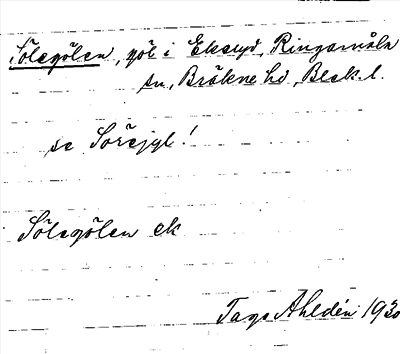 Sölegölen, göl i Ekeryd, Ringamåla
sn, Bräkne hd, Blek. l.
se Sorejgl!
Sölegölen ek
Tage Ahldén 1930